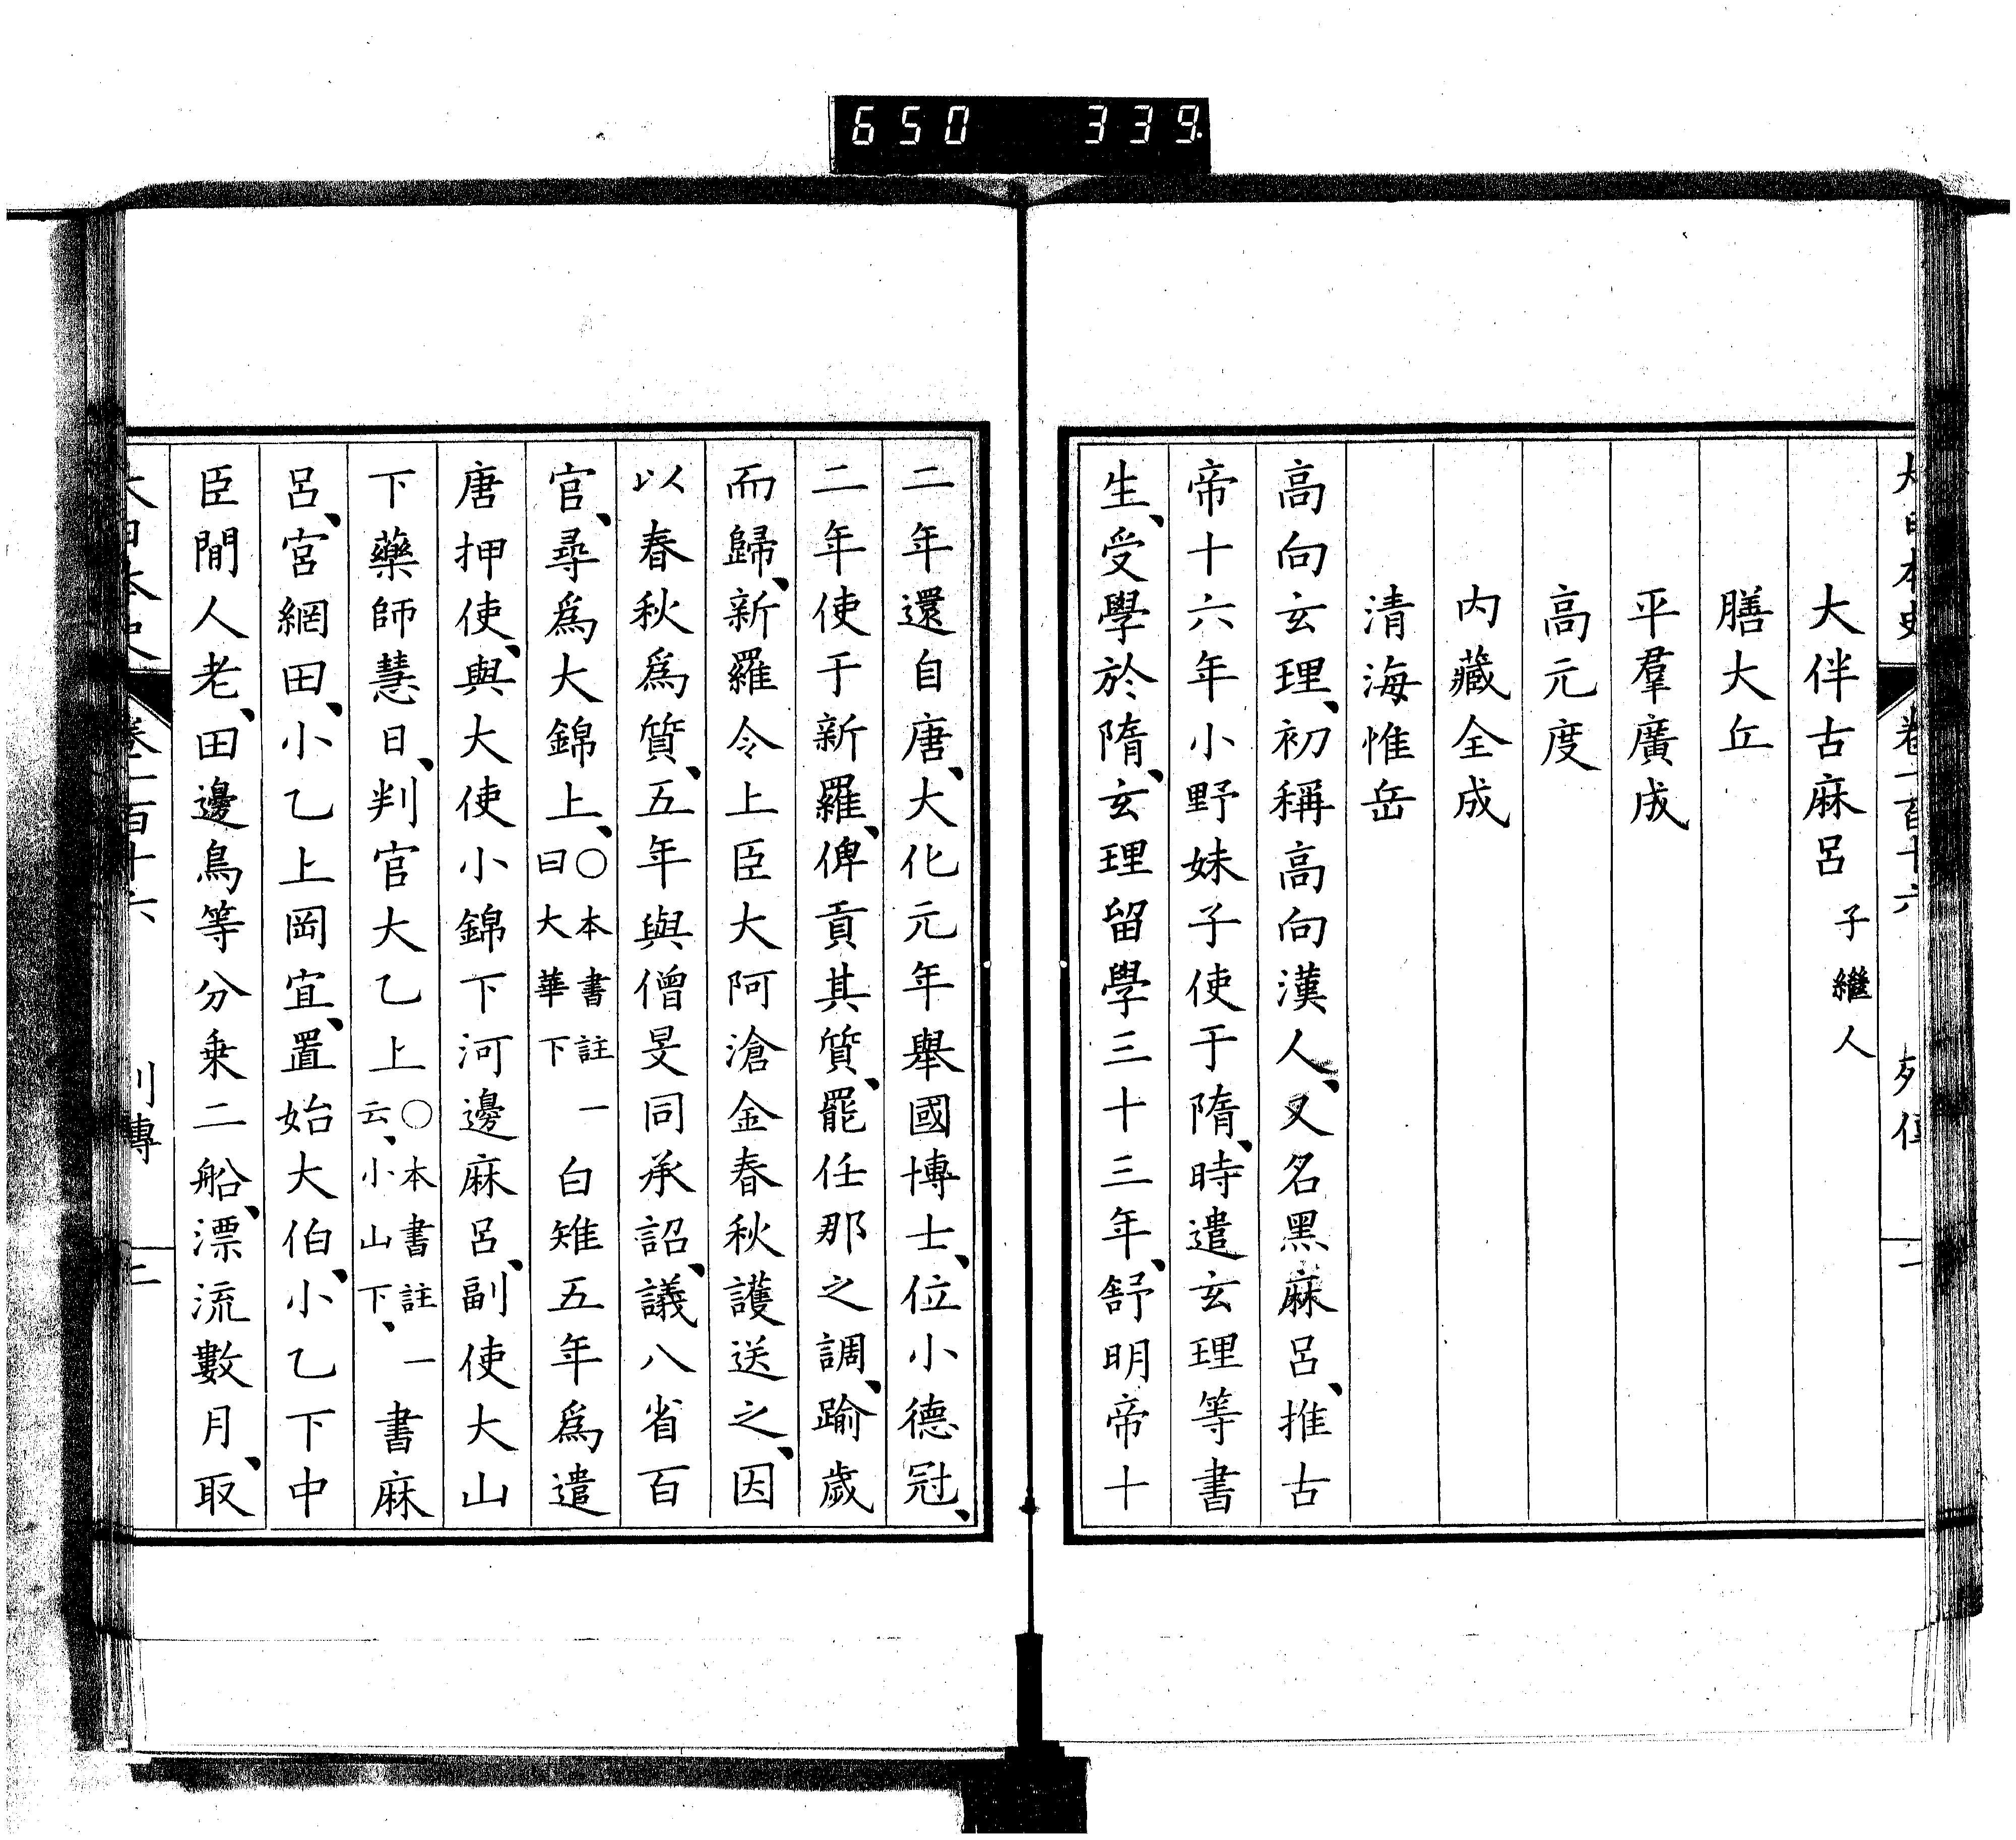 650 339
大日本史 卷一百十六 列傳 一
大伴古麻呂 子繼人
膳大丘
平羣廣成
高元度
内藏全成
清海惟岳
高向玄理、初稱高向漢人、又名黑麻呂、推古
帝十六年小野妹子使于隋、時遣玄理等書
生、受學於隋、玄理留學三十三年、舒明帝十
二年還自唐、大化元年舉國博士、位小德冠、
二年使于新羅、俾貢其質、罷任那之調、踰歲
而歸、新羅令上臣大阿滄金春秋護送之、因
以春秋爲質、五年與僧旻同承詔、議八省百
官、尋爲大錦上、○本書註一曰大華下 白雉五年爲遣
唐押使、與大使小錦下河邊麻呂、副使大山
下藥師慧日、判官大乙上○本書註一云、小山下、書麻
呂、宮網田、小乙上岡宜、置始大伯、小乙下中
臣間人老、田邊鳥等分乗二船、漂流數月、取
大日本史 卷一百十六 列傳 二